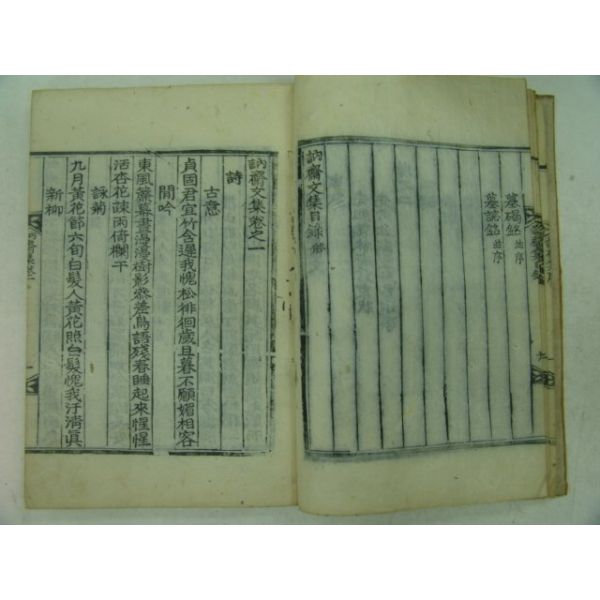 墓碣銘 並序
墓誌銘 並序
訥齋文集目錄 終
訥齋文集卷之一
詩
古意
貞固君宜竹含遲我愧松徘徊歲且暮不願媚相容
閒吟
東風簾幕晝濛濛樹影參差鳥語殘春睡起來惺惺
活杏花疎雨倚欄干
詠菊
九月黃花節六旬白髮人黃花照白髮愧我汙淸眞
新柳